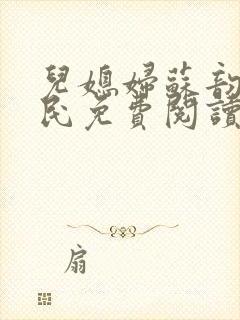 兒媳婦蘇韵
民免費閱讀
扇